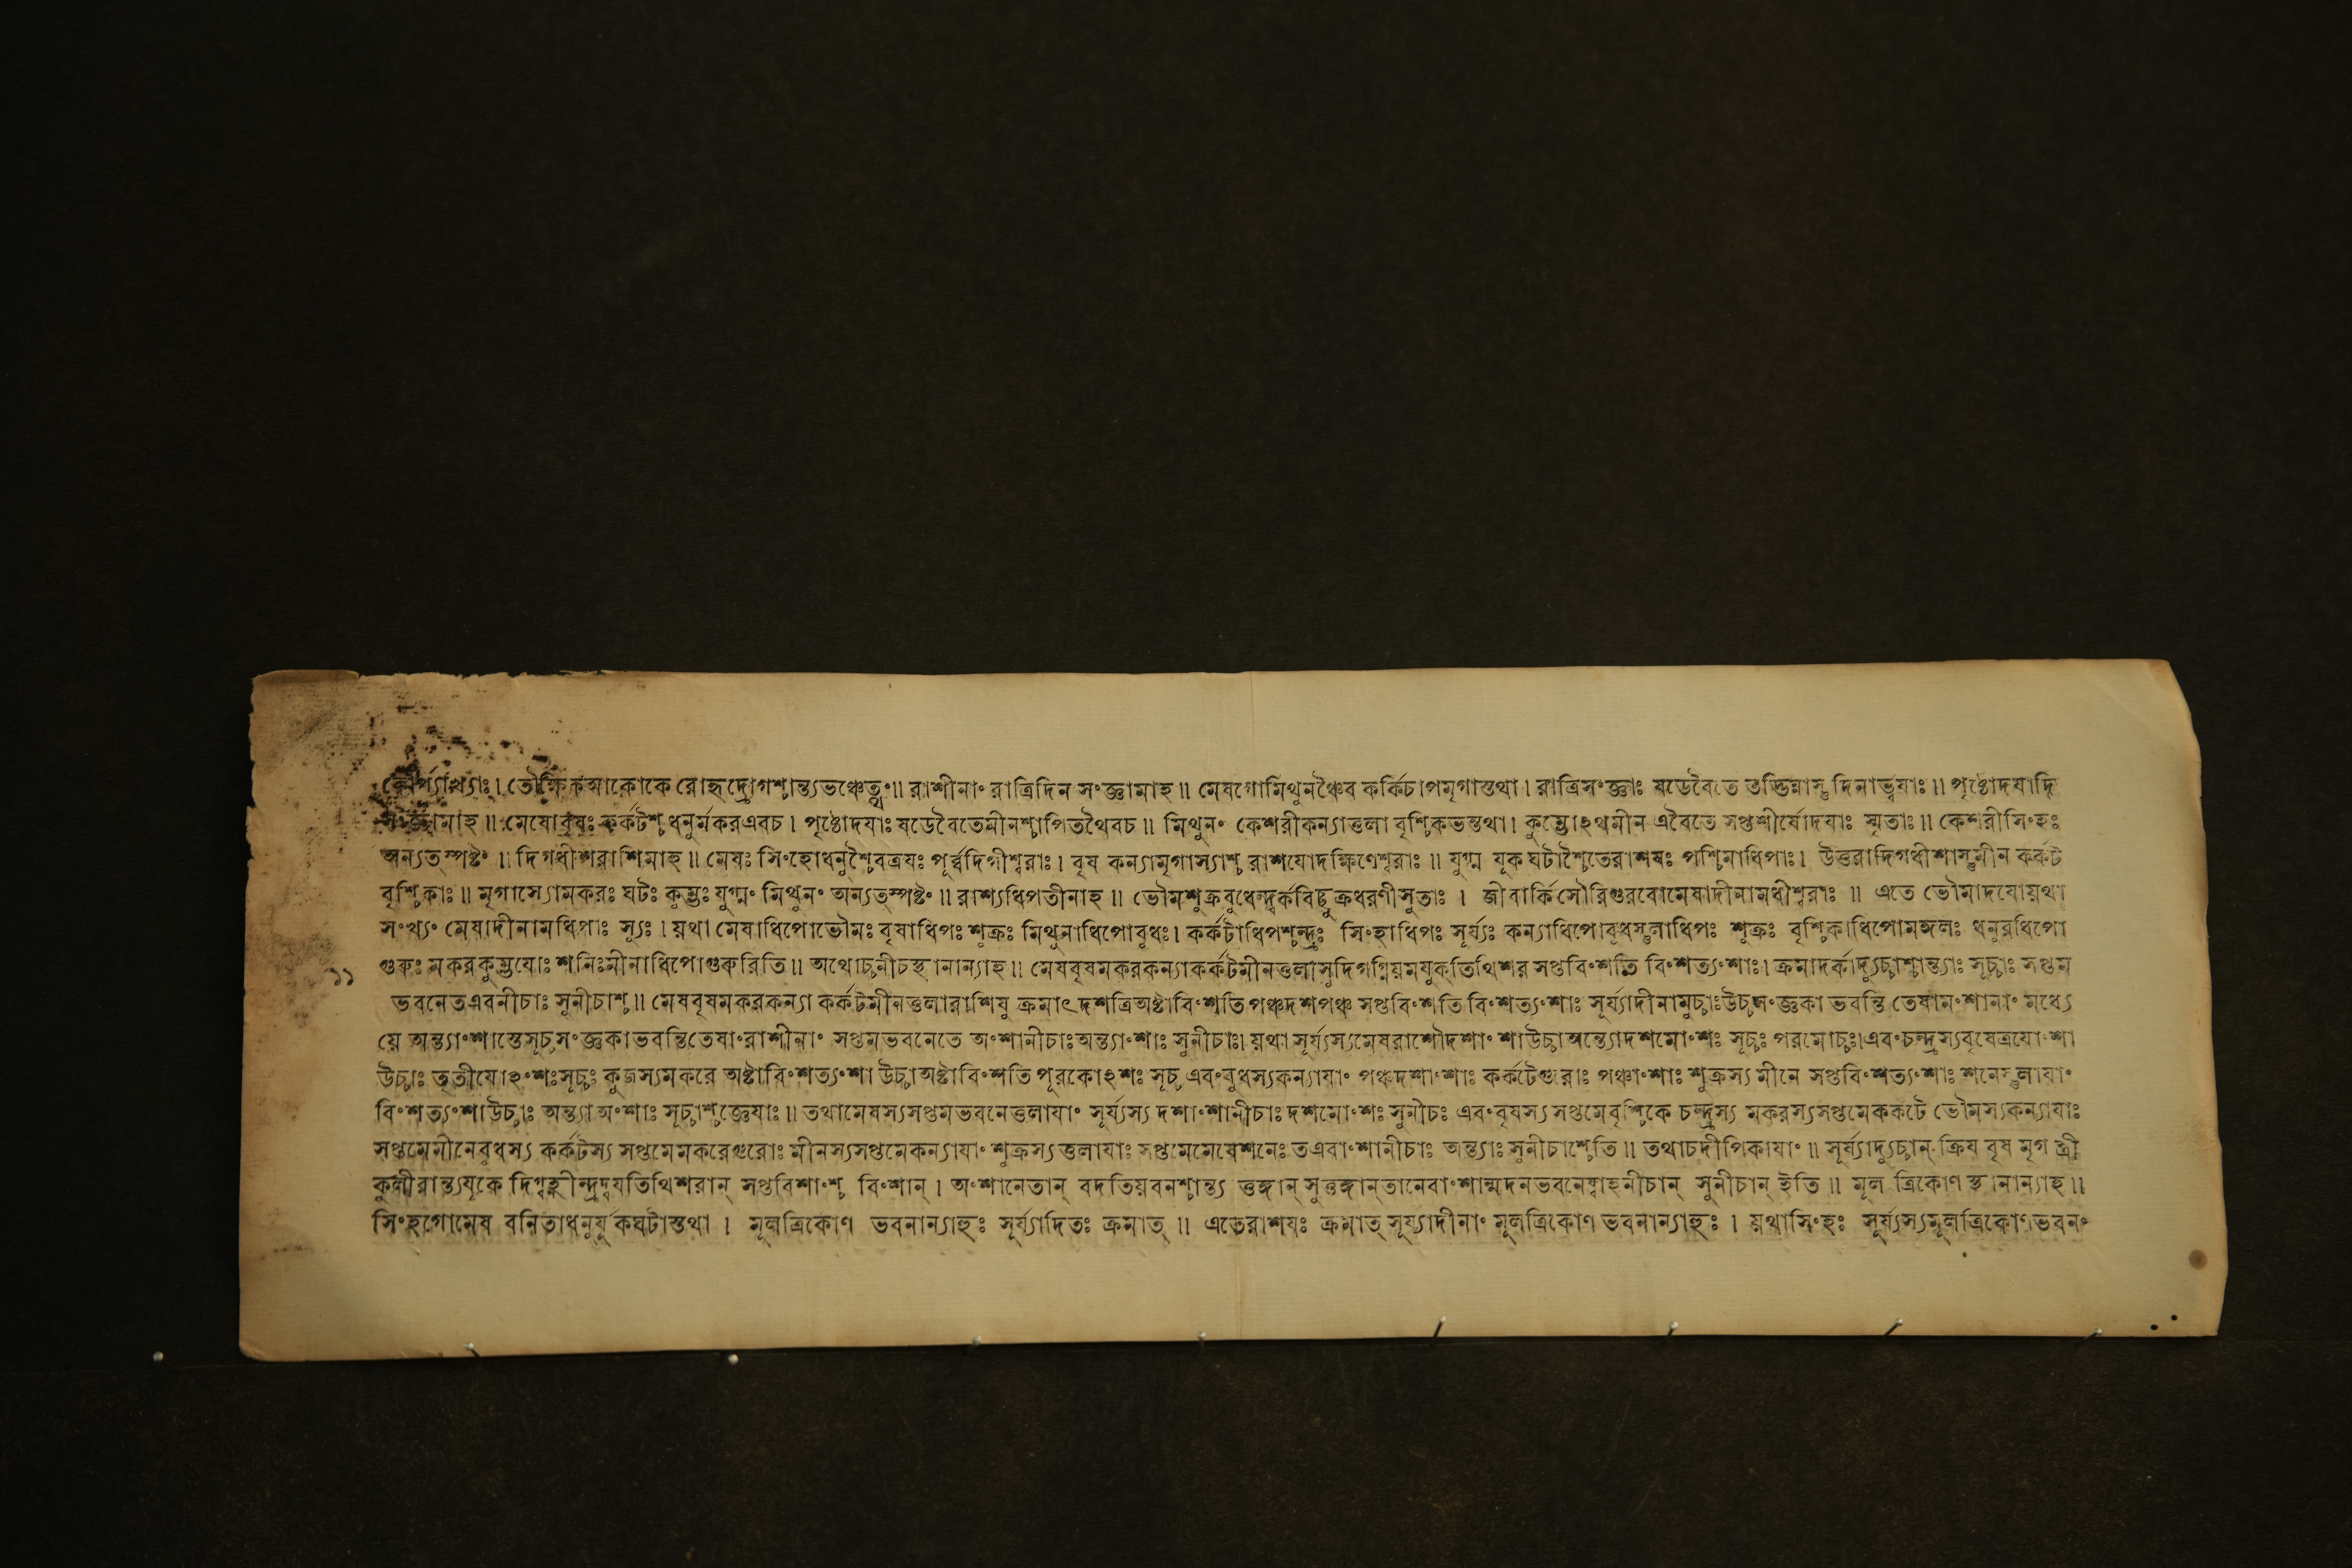 কৌর্প্যাখ্যাঃ। তৌক্ষিকআকোকেরোহৃদ্রোগশ্চান্ত্যভঞ্চেত্থং॥ রাশীনাং রাত্রিদিন সংজ্ঞামাহ॥ মেষগোমিথুনঞ্চৈব কর্কিচাপমৃগাস্তথা। রাত্রিসংজ্ঞাঃ ষডেবৈতে তদ্ভিন্নাস্তু দিনাহ্বযাঃ॥ পৃষ্ঠোদযাদি
সংজ্ঞামাহ॥ মেষোবৃষঃ কর্কটশ্চ ধনুর্মকরএবচ। পৃষ্ঠোদযাঃ ষডেবৈতেমীনশ্চাপিতথৈবচ॥ মিথুনং কেশরীকন্যাতুলা বৃশ্চিকভন্তথা। কুম্ভোঽথমীন এবৈতে সপ্তশীর্ষোদযাঃ স্মৃতাঃ॥ কেশরীসিংহঃ
অন্যত্স্পষ্টং॥ দিগধীশরাশিমাহ॥ মেষঃ সিংহোধনুশ্চৈবত্রযঃ পূর্ব্বদিগীশ্বরাঃ। বৃষ কন্যামৃগাস্যাশ্চ রাশযোদক্ষিণেশ্বরাঃ॥ যুগ্ম যূক ঘটাশ্চৈতেরাশযঃ পশ্চিমাধিপাঃ। উত্তরাদিগধীশাস্তুমীন কর্কট
বৃশ্চিকাঃ॥ মৃগাস্যোমকরঃ ঘটঃ কুম্ভঃ যুগ্মং মিথুনং অন্যত্স্পষ্টং॥ রাশ্যধিপতীনাহ॥ ভৌমশুক্রবুধেন্দ্বর্কবিচ্ছুক্রধরণীসুতাঃ। জীবার্কিসৌরিগুরবোমেষাদীনামধীশ্বরাঃ॥ এতে ভৌমাদযোয়থা
সংখ্যং মেষাদীনামধিপাঃ স্যুঃ। য়থা মেষাধিপোভৌমঃ বৃষাধিপঃ শুক্রঃ মিথুনাধিপোবুধঃ। কর্কটাধিপশ্চন্দ্রঃ সিংহাধিপঃ সূর্য্যঃ কন্যাধিপোবুধস্তুলাধিপঃ শুক্রঃ বৃশ্চিকাধিপোমঙ্গলঃ ধনুরধিপো
১১ গুরুঃ মকরকুম্ভযোঃ শনিঃমীনাধিপোগুরুরিতি॥ অথোচ্চনীচস্থানান্যাহ॥ মেষবৃষমকরকন্যাকর্কটমীনতুলাসুদিগগ্নিয়মযুক্তিথিশর সপ্তবিংশতি বিংশত্যংশাঃ। ক্রমাদর্কাদ্যুচ্চাশ্চান্ত্যাঃ সূচ্চাঃ সপ্তম
ভবনেতএবনীচাঃ সুনীচাশ্চ॥ মেষবৃষমকরকন্যা কর্কটমীনতুলারাশিষু ক্রমাৎ দশত্রিঅষ্টাবিংশতি পঞ্চদশপঞ্চ সপ্তবিংশতি বিংশত্যংশাঃ সূর্য্যাদীনামুচ্চাঃউচ্চসংজ্ঞকা ভবন্তি তেষামংশানাং মধ্যে
যে অন্ত্যাংশাস্তেসূচ্চসংজ্ঞকাভবন্তিতেষাংরাশীনাং সপ্তমভবনেতে অংশানীচাঃঅন্ত্যাংশাঃ সুনীচাঃ। য়থা সূর্য্যস্যমেষরাশৌদশাংশাউচ্চাঅন্ত্যোদশমোংশঃ সূচ্চঃ পরমোচ্চঃ।এবংচন্দ্রস্যবৃষেত্রযোংশা
উচ্চাঃ তৃতীযোঽংশঃসূচ্চঃ কুজস্যমকরে অষ্টাবিংশত্যংশা উচ্চাঅষ্টাবিংশতি পূরকোঽশঃ সূচ্চ এবংবুধস্যকন্যাযাং পঞ্চদশাংশাঃ কর্কটেগুরোঃ পঞ্চাংশাঃ শুক্রস্য মীনে সপ্তবিংশত্যংশাঃ শনেস্তুলাযাং
বিংশত্যংশাউচ্চাঃ অন্ত্যাঅংশাঃ সূচ্চাশ্চজ্ঞেযাঃ॥ তথামেষস্যসপ্তমভবনেতুলাযাং সূর্য্যস্য দশাংশানীচাঃ দশমোংশঃ সুনীচঃ এবংবৃষস্য সপ্তমেবৃশ্চিকে চন্দ্রস্য মকরস্যসপ্তমেকর্কটে ভৌমস্যকন্যাযাঃ
সপ্তমেমীনেবুধস্য কর্কটস্য সপ্তমেমকরেগুরোঃ মীনস্যসপ্তমেকন্যাযাং শুক্রস্য তুলাযাঃ সপ্তমেমেষেশনেঃ তএবাংশানীচাঃ অন্ত্যাঃ সুনীচাশ্চেতি॥ তথাচদীপিকাযাং॥ সূর্য্যাদ্যুচ্চান্ ক্রিয বৃষ মৃগ স্ত্রী
কুলীরান্ত্যযূকে দিগ্বহ্নীন্দ্রদ্বযতিথিশরান্ সপ্তবিংশাংশ্চ বিংশান্। অংশানেতান্ বদতিয়বনশ্চান্ত্য তুঙ্গান্ সুতুঙ্গান্তানেবাংশান্মদনভবনেষ্বাহনীচান্ সুনীচান্ ইতি॥ মূল ত্রিকোণ স্তানান্যাহ॥
সিংহগোমেষ বনিতাধনুর্যুকঘটাস্তথা। মূলত্রিকোণ ভবনান্যাহুঃ সূর্য্যাদিতঃ ক্রমাত্॥ এতেরাশযঃ ক্রমাত্ সূর্য্যাদীনাং মূলত্রিকোণ ভবনান্যাহুঃ। য়থাসিংহঃ সূর্য্যস্যমূলত্রিকোণভবনং